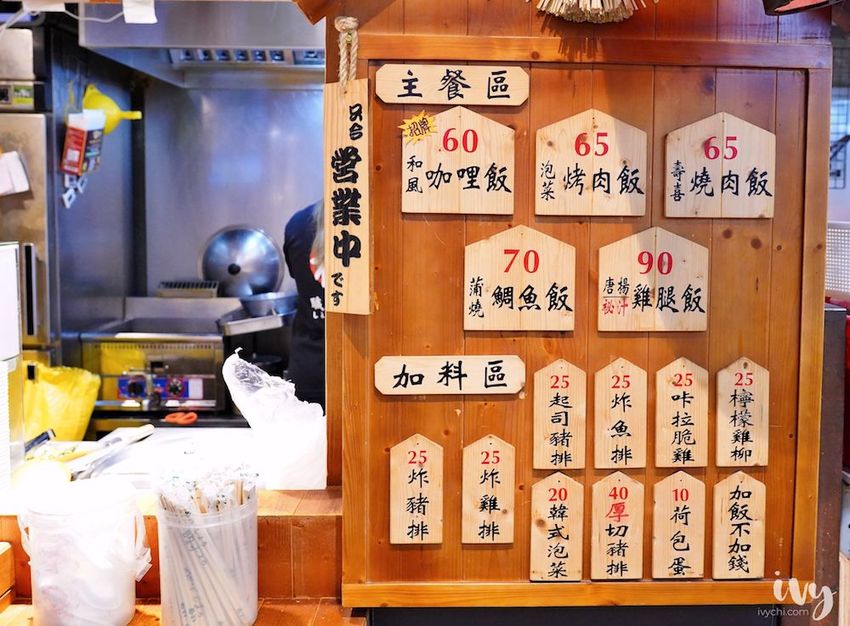 主餐區
只今
営業中
です
招牌
60
和風
咖哩飯
65
泡菜
烤肉飯
65
壽喜
燒肉飯
70
蒲燒
鯛魚飯
90
唐揚
秘汁
雞腿飯
加料區
25
炸豬排
25
炸雞排
25
起司豬排
25
炸魚排
25
咔拉脆雞
25
檸檬雞柳
20
韓式泡菜
40
厚切豬排
10
荷包蛋
加飯不加錢
ivy
ivychi.com